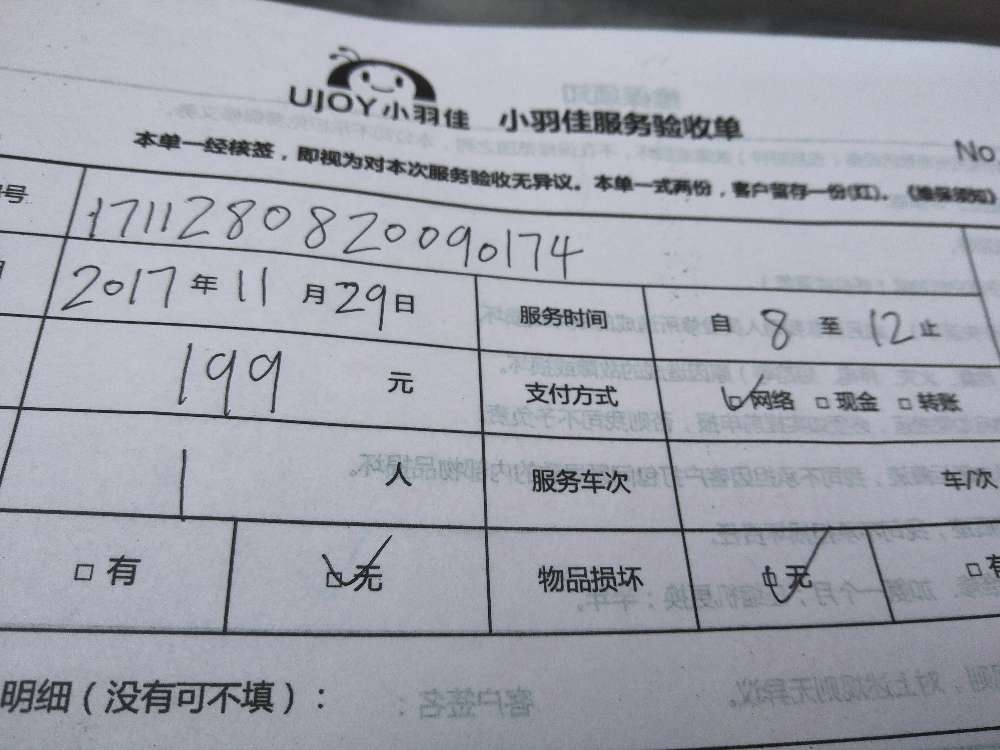 UJOY小羽佳 小羽佳服务验收单
No
本单一经核签，即视为对本次服务验收无异议。本单一式两份，客户留存一份(红)。《维保须知》
号 171128082009​0174
2017年11月29日 服务时间 自8至12止
199元 支付方式 ☑网络 □现金 □转账
1人 服务车次 车/次
□有 ☑无 物品损坏 ☑无 □有
明细（没有可不填）：